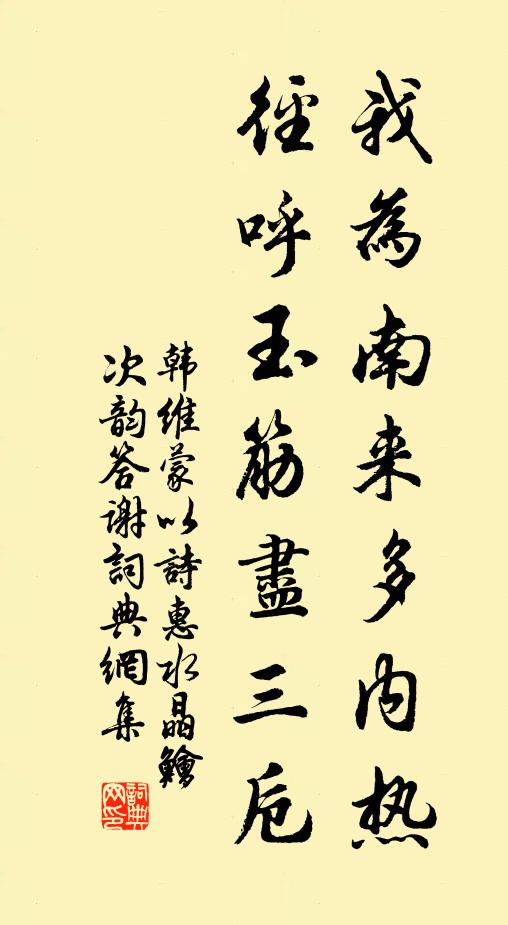 我為南来多内热
徑呼玉筋盡三卮
韩維蒙以詩惠水晶鱠
次韵答谢詞典網集
詞典
网印